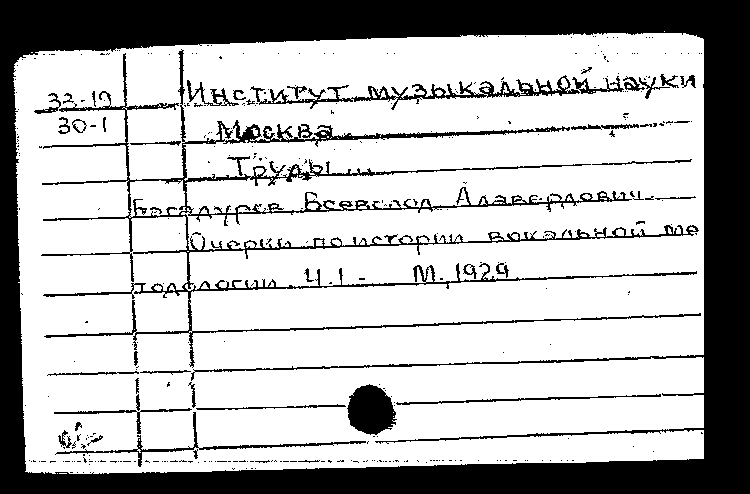 33-19 Институт музыкальной науки
30-1 Москва
Труды ...
Багадуров, Всеволод Алавердович.
Очерки по истории вокальной ме
тодологии. Ч.1 - М., 1929